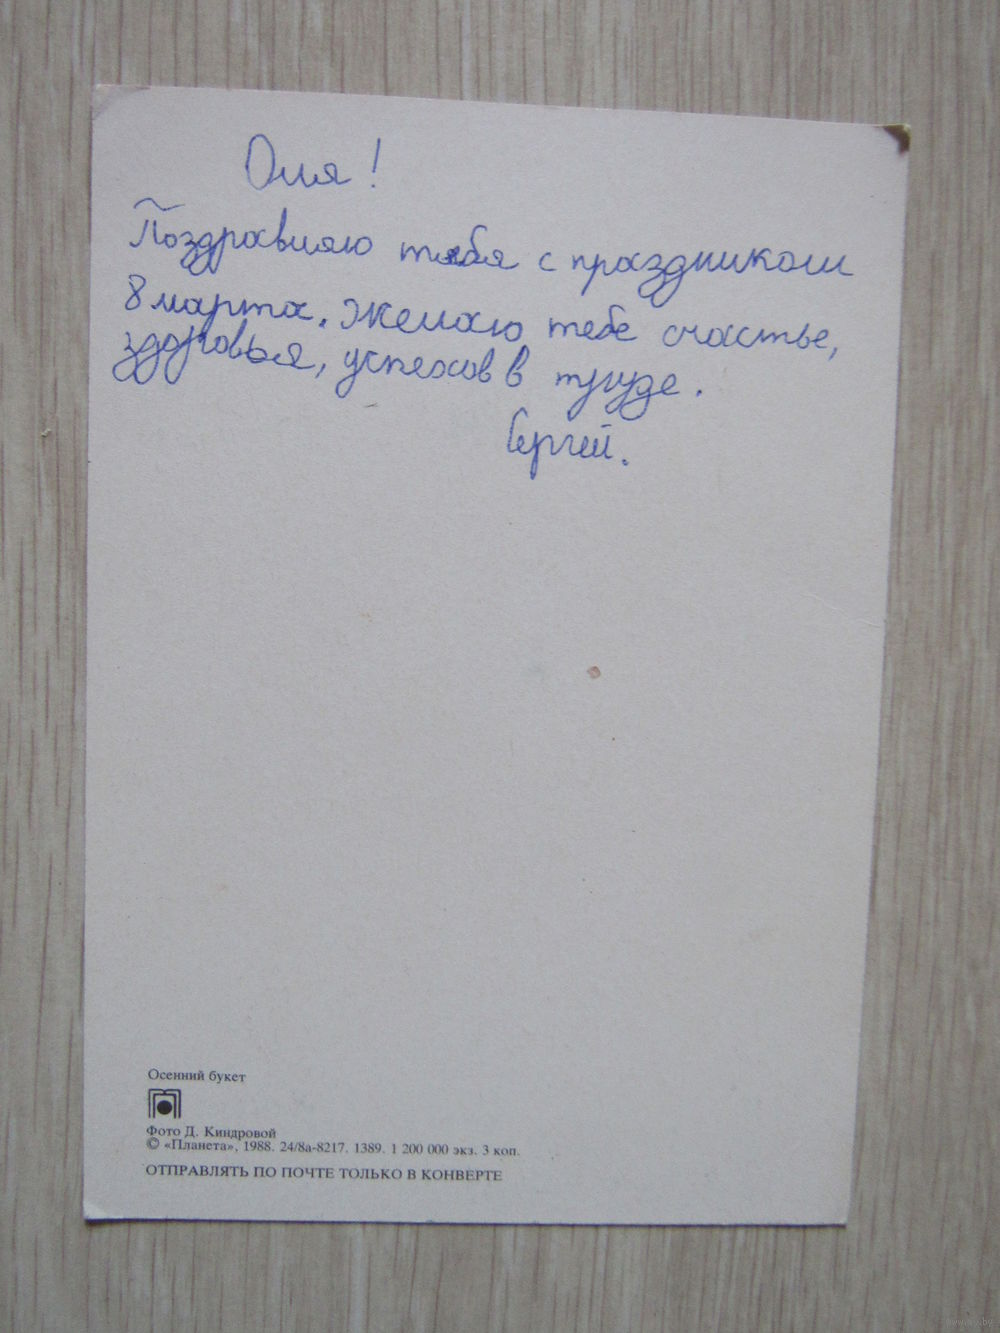 Оля!
Поздравляю тебя с праздником
8 марта. Желаю тебе счастье,
здоровья, успехов в труде.
Сергей.
Осенний букет
Фото Д. Киндровой
© «Планета», 1988. 24/8а-8217. 1389. 1 200 000 экз. 3 коп.
ОТПРАВЛЯТЬ ПО ПОЧТЕ ТОЛЬКО В КОНВЕРТЕ